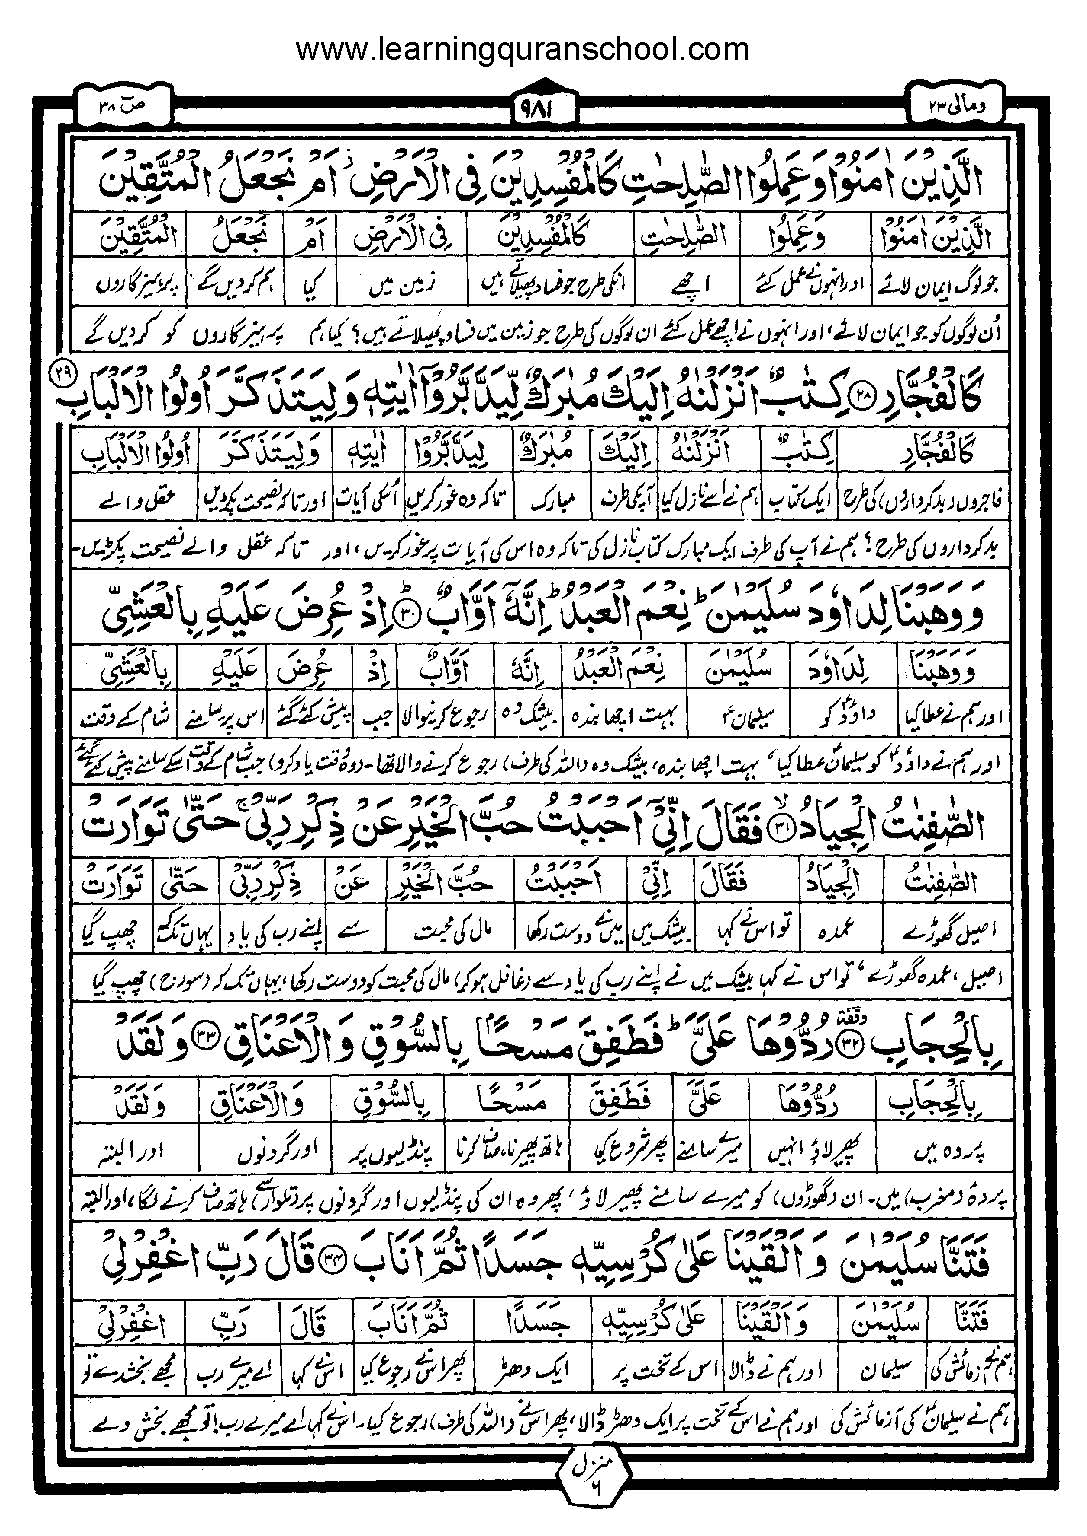 www.learningquranschool.com
ومالی ۲۳
۹۸۱
صٓ ۳۸
الَّذِيْنَ اٰمَنُوْا وَعَمِلُوا الصّٰلِحٰتِ كَالْمُفْسِدِيْنَ فِي الْاَرْضِ اَمْ نَجْعَلُ الْمُتَّقِيْنَ
الَّذِيْنَ اٰمَنُوْا وَعَمِلُوا الصّٰلِحٰتِ كَالْمُفْسِدِيْنَ فِي الْاَرْضِ اَمْ نَجْعَلُ الْمُتَّقِيْنَ
جو لوگ ایمان لائے اور انہوں نے عمل کئے اچھے انکی طرح جو فساد پھیلاتے ہیں زمین میں کیا ہم کر دیں گے پرہیزگاروں
اُن لوگوں کو جو ایمان لائے، اور انہوں نے اچھے عمل کئے ان لوگوں کی طرح جو زمین میں فساد پھیلاتے ہیں؟ کیا ہم پرہیزگاروں کو کر دیں گے
۲۹
كَالْفُجَّارِ ۲۸ كِتٰبٌ اَنْزَلْنٰهُ اِلَيْكَ مُبٰرَكٌ لِّيَدَّبَّرُوْٓا اٰيٰتِهٖ وَلِيَتَذَكَّرَ اُولُوا الْاَلْبَابِ
كَالْفُجَّارِ كِتٰبٌ اَنْزَلْنٰهُ اِلَيْكَ مُبٰرَكٌ لِّيَدَّبَّرُوْٓا اٰيٰتِهٖ وَلِيَتَذَكَّرَ اُولُوا الْاَلْبَابِ
فاجروں (بدکرداروں) کی طرح ایک کتاب ہم نے اسے نازل کیا آپکی طرف مبارک تاکہ وہ غور کریں اُسکی آیات اور تاکہ نصیحت پکڑیں عقل والے
بدکرداروں کی طرح؟ ہم نے آپ کی طرف ایک مبارک کتاب نازل کی تاکہ وہ اس کی آیات پر غور کریں، اور تاکہ عقل والے نصیحت پکڑیں۔
وَوَهَبْنَا لِدَاوٗدَ سُلَيْمٰنَ ؕ نِعْمَ الْعَبْدُ ؕ اِنَّهٗٓ اَوَّابٌ ۳۰ اِذْ عُرِضَ عَلَيْهِ بِالْعَشِيِّ
وَوَهَبْنَا لِدَاوٗدَ سُلَيْمٰنَ نِعْمَ الْعَبْدُ اِنَّهٗٓ اَوَّابٌ اِذْ عُرِضَ عَلَيْهِ بِالْعَشِيِّ
اور ہم نے عطا کیا داؤدؑ کو سلیمانؑ بہت اچھا بندہ بیشک وہ رجوع کرنیوالا جب پیش کئے گئے اس پر سامنے شام کے وقت
اور ہم نے داؤدؑ کو سلیمانؑ عطا کیا، بہت اچھا بندہ، بیشک وہ (اللہ کی طرف) رجوع کرنے والا تھا۔ (وہ وقت یاد کرو) جب شام کے وقت اسکے سامنے پیش کئے گئے
الصّٰفِنٰتُ الْجِيَادُ ۙ ۳۱ فَقَالَ اِنِّيْٓ اَحْبَبْتُ حُبَّ الْخَيْرِ عَنْ ذِكْرِ رَبِّيْ ۚ حَتّٰى تَوَارَتْ
الصّٰفِنٰتُ الْجِيَادُ فَقَالَ اِنِّيْ اَحْبَبْتُ حُبَّ الْخَيْرِ عَنْ ذِكْرِ رَبِّيْ حَتّٰى تَوَارَتْ
اصیل گھوڑے عمدہ تو اس نے کہا بیشک میں میں نے دوست رکھا مال کی محبت سے اپنے رب کی یاد یہاں تک کہ چھپ گیا
اصیل، عمدہ گھوڑے، تو اس نے کہا بیشک میں نے اپنے رب کی یاد سے (غافل ہو کر) مال کی محبت کو دوست رکھا، یہاں تک کہ (سورج) چھپ گیا
بِالْحِجَابِ ۳۲ وقفة رُدُّوْهَا عَلَيَّ ؕ فَطَفِقَ مَسْحًا بِالسُّوْقِ وَالْاَعْنَاقِ ۳۳ وَلَقَدْ
بِالْحِجَابِ رُدُّوْهَا عَلَيَّ فَطَفِقَ مَسْحًا بِالسُّوْقِ وَالْاَعْنَاقِ وَلَقَدْ
پردہ میں پھیر لاؤ انہیں میرے سامنے پھر شروع کیا ہاتھ پھیرنا، صاف کرنا پنڈلیوں پر اور گردنوں اور البتہ
پردۂ (مغرب) میں۔ ان (گھوڑوں) کو میرے سامنے پھیر لاؤ، پھر وہ ان کی پنڈلیوں اور گردنوں پر (تلوار سے) ہاتھ صاف کرنے لگا، اور البتہ
فَتَنَّا سُلَيْمٰنَ وَاَلْقَيْنَا عَلٰى كُرْسِيِّهٖ جَسَدًا ثُمَّ اَنَابَ ۳۴ قَالَ رَبِّ اغْفِرْ لِيْ
فَتَنَّا سُلَيْمٰنَ وَاَلْقَيْنَا عَلٰى كُرْسِيِّهٖ جَسَدًا ثُمَّ اَنَابَ قَالَ رَبِّ اغْفِرْ لِيْ
ہم نے آزمائش کی سلیمان اور ہم نے ڈالا اس کے تخت پر ایک دھڑ پھر اس نے رجوع کیا اس نے کہا اے میرے رب مجھے بخش دے تو
ہم نے سلیمانؑ کی آزمائش کی اور ہم نے اس کے تخت پر ایک دھڑ ڈالا، پھر اس نے (اللہ کی طرف) رجوع کیا۔ اس نے کہا اے میرے رب! تو مجھے بخش دے
منزل ۶